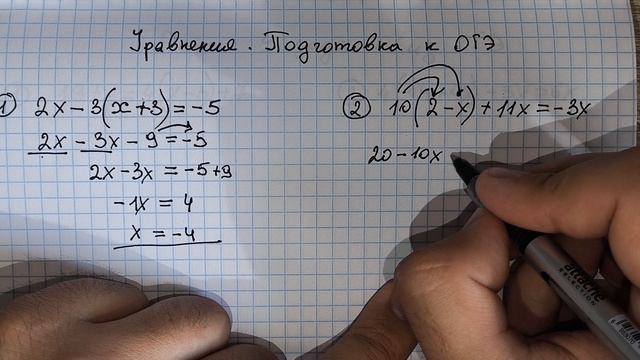 Уравнения. Подготовка к ОГЭ
1) 2x - 3(x+3) = -5
2x - 3x - 9 = -5
2x - 3x = -5+9
-1x = 4
x = -4
2) 10(2-x) + 11x = -3x
20 - 10x
attache
SELECTION